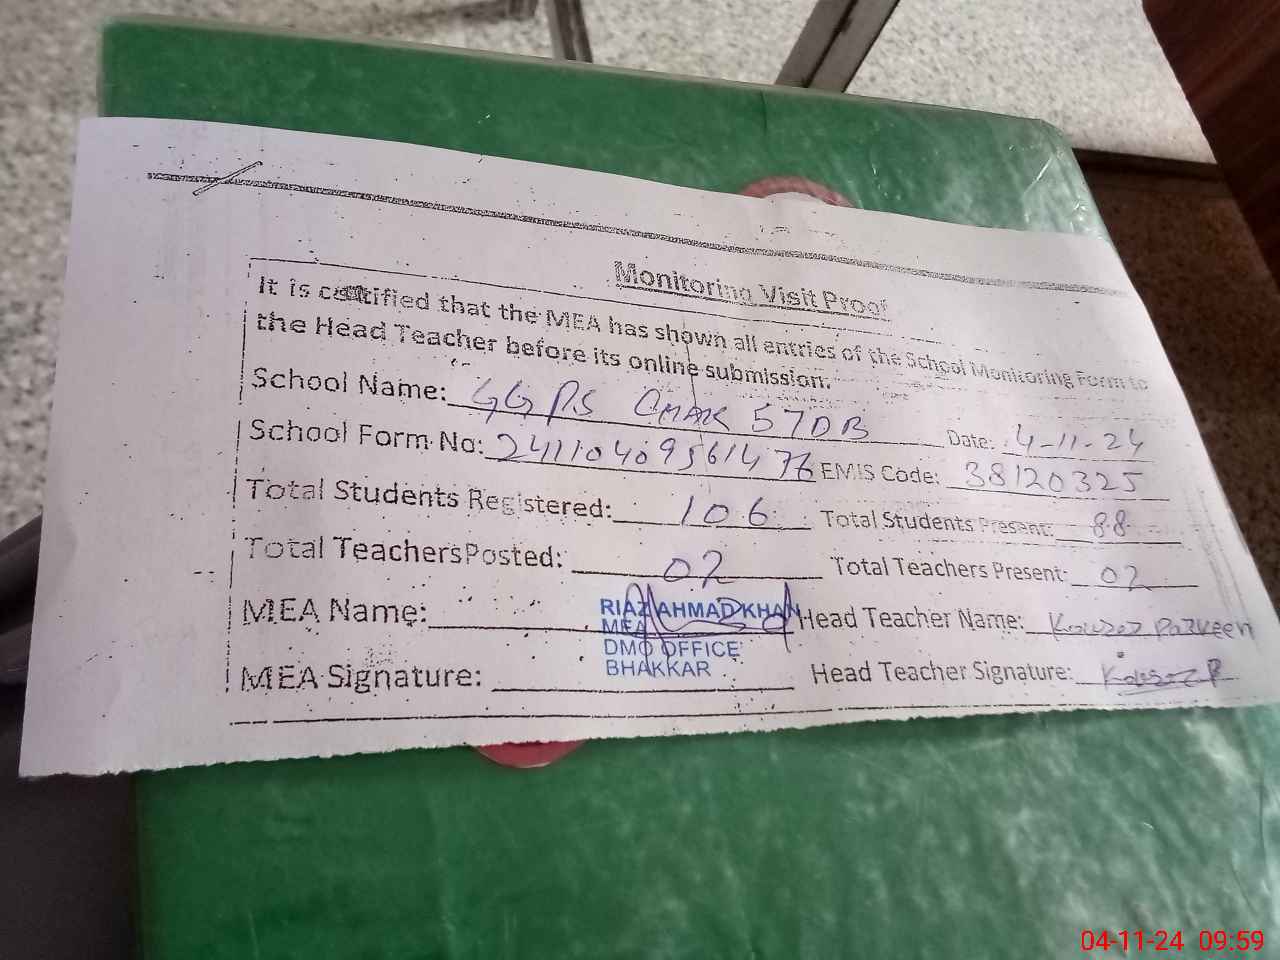 Monitoring Visit Proof
It is certified that the MEA has shown all entries of the School Monitoring Form to
the Head Teacher before its online submission.
School Name: GGPS CHAK 57DB Date: 4-11-24
School Form No: 241104095614 76 EMIS Code: 38120325
Total Students Registered: 106 Total Students Present: 88
Total Teachers Posted: 02 Total Teachers Present: 02
MEA Name: RIAZ AHMAD KHAN Head Teacher Name: Kousar Parveen
MEA
DMO OFFICE
BHAKKAR
MEA Signature: Head Teacher Signature: Kousar P
04-11-24 09:59